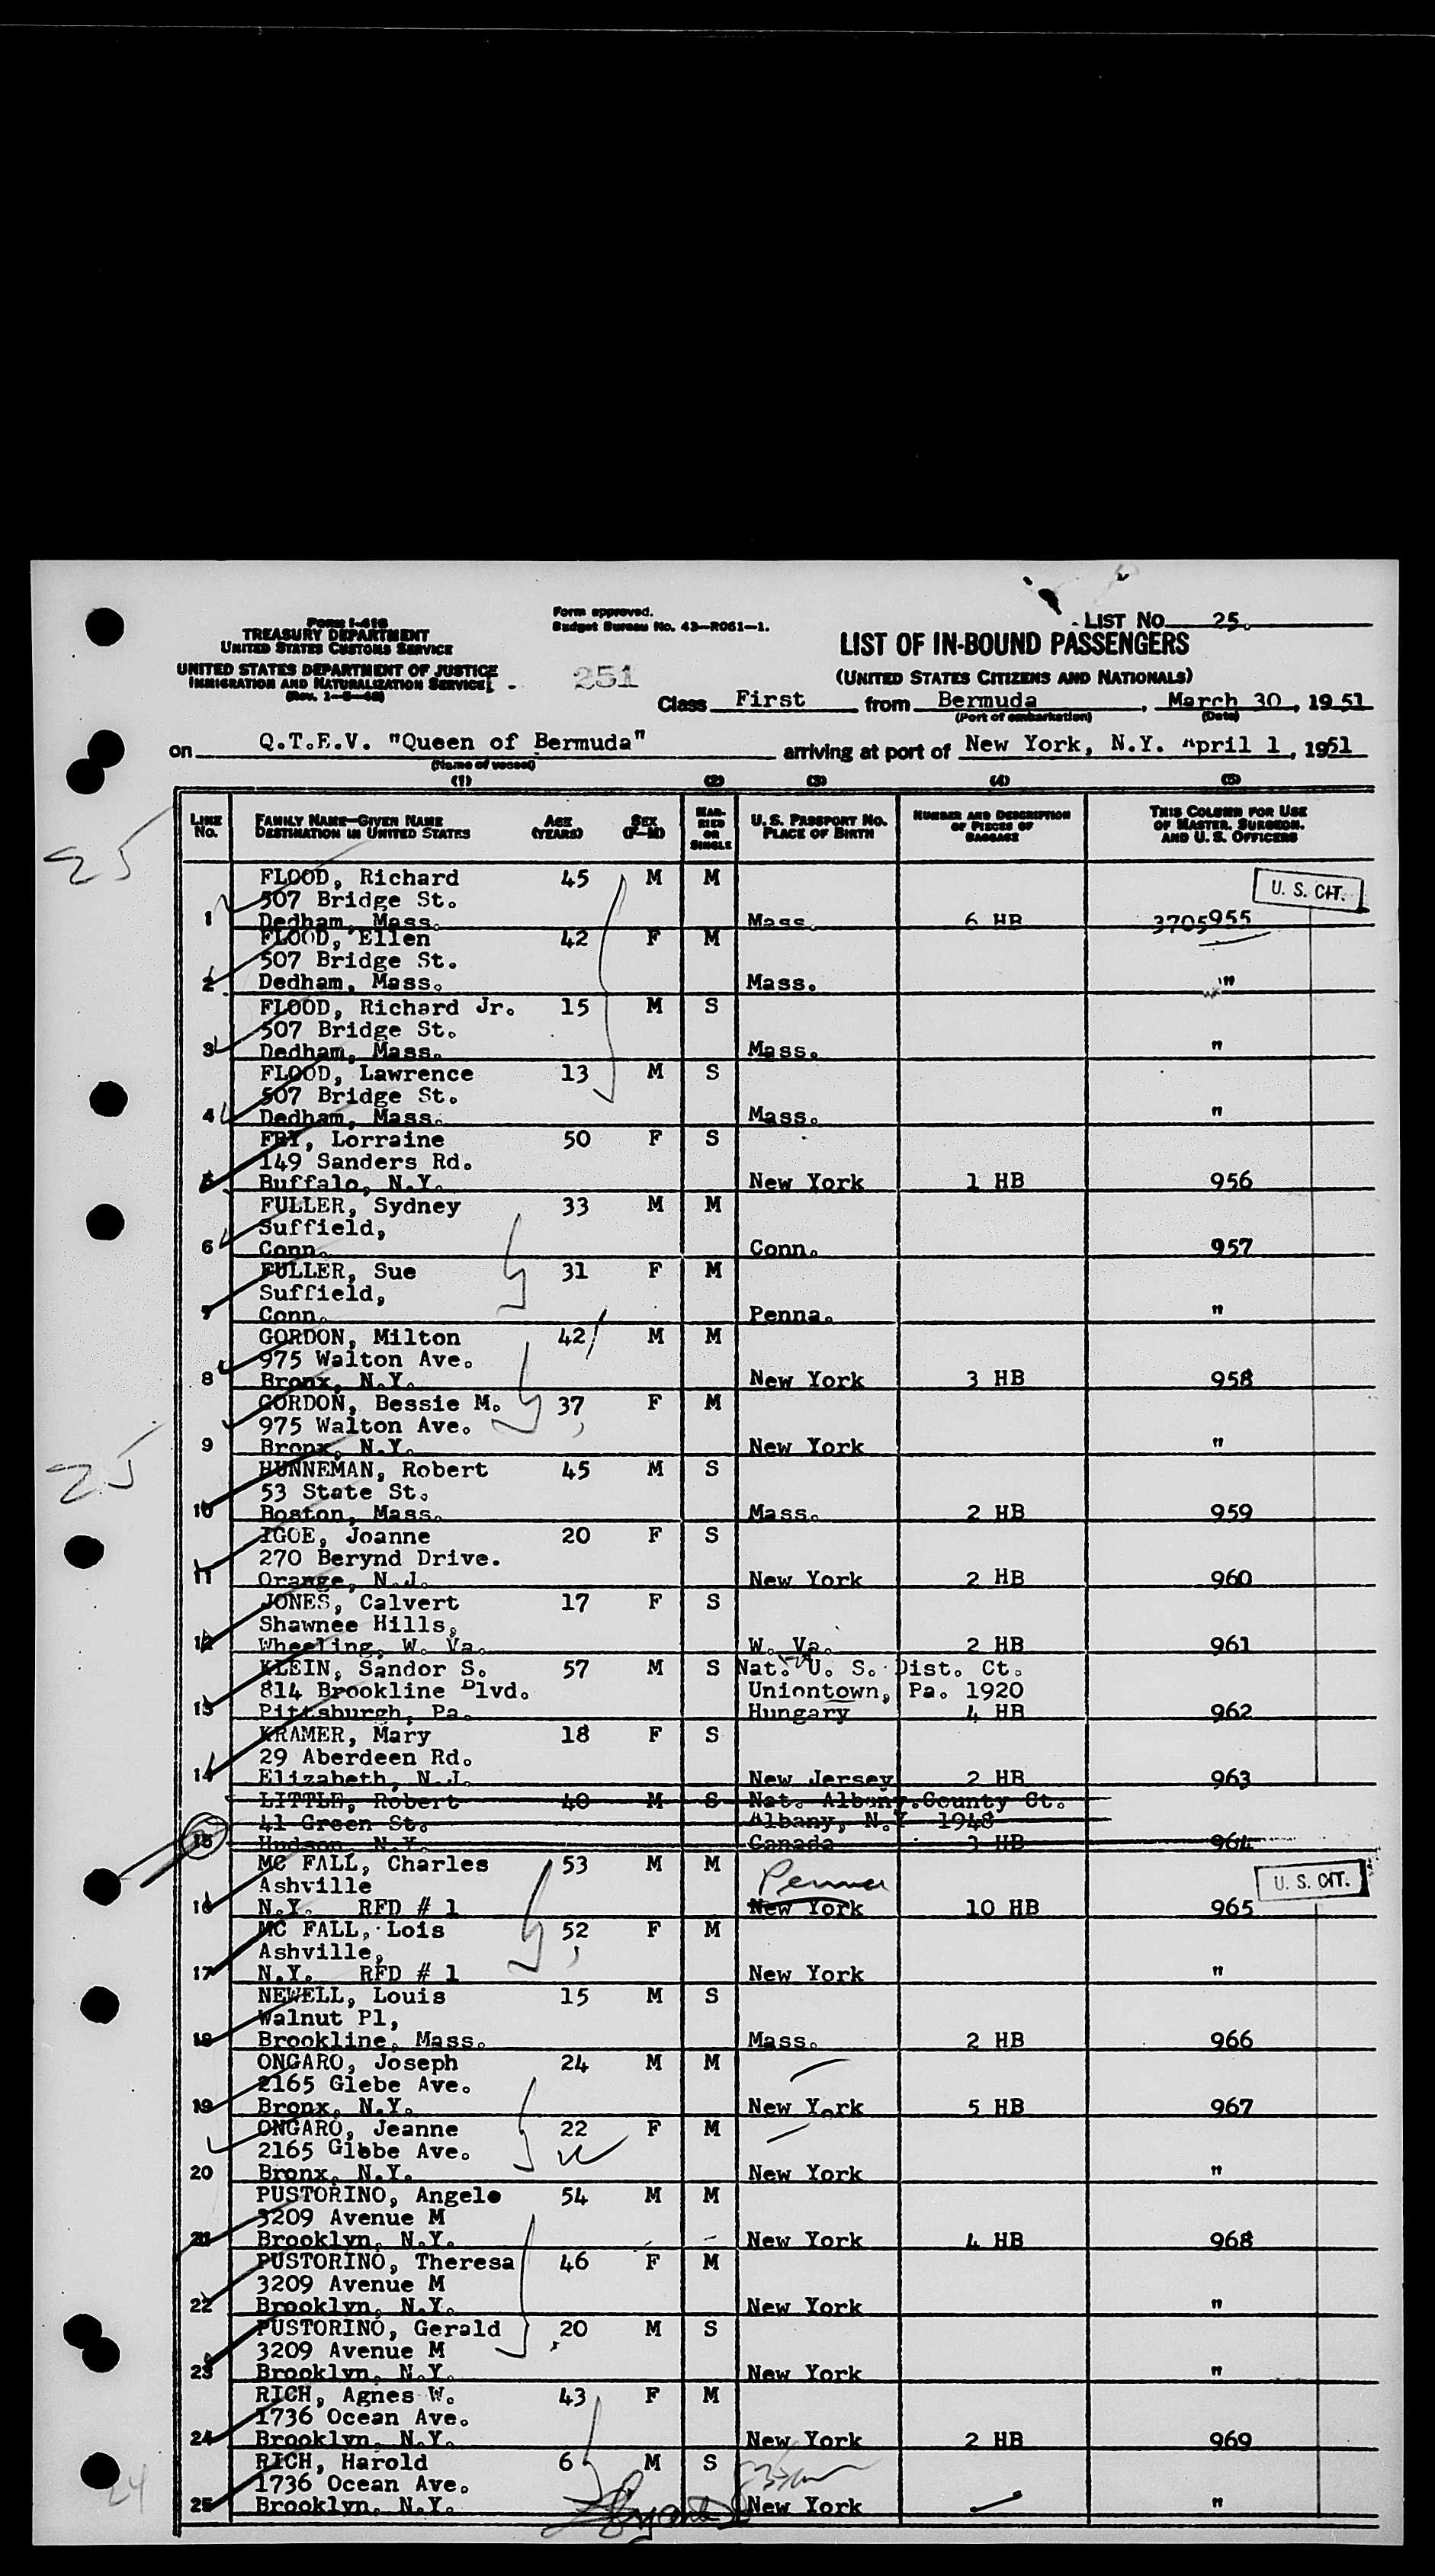 Form I-418
TREASURY DEPARTMENT
UNITED STATES CUSTOMS SERVICE
UNITED STATES DEPARTMENT OF JUSTICE
IMMIGRATION AND NATURALIZATION SERVICE
Form approved.
Budget Bureau No. 43—R061—1.
LIST No. 25.
LIST OF IN-BOUND PASSENGERS
(UNITED STATES CITIZENS AND NATIONALS)
251
Class First from Bermuda, March 30, 1951
(Port of embarkation) (Date)
on Q.T.E.V. "Queen of Bermuda" arriving at port of New York, N.Y. April 1, 1951
(Name of vessel)
(1) (2) (3) (4) (5)
LINE No. FAMILY NAME—GIVEN NAME DESTINATION IN UNITED STATES AGE (YEARS) SEX (F—M) MARRIED OR SINGLE U. S. PASSPORT NO. PLACE OF BIRTH NUMBER AND DESCRIPTION OF PIECES OF BAGGAGE THIS COLUMN FOR USE OF MASTER, SURGEON, AND U. S. OFFICERS
25
FLOOD, Richard 45 M M U. S. CIT.
507 Bridge St.
1 Dedham, Mass. Mass. 6 HB 3705955
FLOOD, Ellen 42 F M
507 Bridge St.
2 Dedham, Mass. Mass. "
FLOOD, Richard Jr. 15 M S
507 Bridge St.
3 Dedham, Mass. Mass. "
FLOOD, Lawrence 13 M S
507 Bridge St.
4 Dedham, Mass. Mass. "
FRY, Lorraine 50 F S
149 Sanders Rd.
5 Buffalo, N.Y. New York 1 HB 956
FULLER, Sydney 33 M M
Suffield,
6 Conn. Conn. 957
FULLER, Sue 31 F M
Suffield,
7 Conn. Penna. "
GORDON, Milton 42 M M
975 Walton Ave.
8 Bronx, N.Y. New York 3 HB 958
GORDON, Bessie M. 37 F M
975 Walton Ave.
9 Bronx, N.Y. New York "
25
HUNNEMAN, Robert 45 M S
53 State St.
10 Boston, Mass. Mass. 2 HB 959
IGOE, Joanne 20 F S
270 Berynd Drive.
11 Orange, N.J. New York 2 HB 960
JONES, Calvert 17 F S
Shawnee Hills,
12 Wheeling, W. Va. W. Va. 2 HB 961
KLEIN, Sandor S. 57 M S Nat. U. S. Dist. Ct.
814 Brookline Blvd. Uniontown, Pa. 1920
13 Pittsburgh, Pa. Hungary 4 HB 962
KRAMER, Mary 18 F S
29 Aberdeen Rd.
14 Elizabeth, N.J. New Jersey 2 HB 963
LITTLE, Robert 40 M S Nat. Albany.County Ct.
41 Green St. Albany, N.Y 1948
15 Hudson, N.Y. Canada 3 HB 964
MC FALL, Charles 53 M M Penna
Ashville U. S. CIT.
16 N.Y. RFD # 1 New York 10 HB 965
MC FALL, Lois 52 F M
Ashville,
17 N.Y. RFD # 1 New York "
NEWELL, Louis 15 M S
Walnut Pl,
18 Brookline, Mass. Mass. 2 HB 966
ONGARO, Joseph 24 M M
2165 Glebe Ave.
19 Bronx, N.Y. New York 5 HB 967
ONGARO, Jeanne 22 F M
2165 Glbbe Ave.
20 Bronx, N.Y. New York "
PUSTORINO, Angelo 54 M M
3209 Avenue M
21 Brooklyn, N.Y. New York 4 HB 968
PUSTORINO, Theresa 46 F M
3209 Avenue M
22 Brooklyn, N.Y. New York "
PUSTORINO, Gerald 20 M S
3209 Avenue M
23 Brooklyn, N.Y. New York "
RICH, Agnes W. 43 F M
1736 Ocean Ave.
24 Brooklyn, N.Y. New York 2 HB 969
RICH, Harold 6 M S
24 1736 Ocean Ave.
25 Brooklyn, N.Y. New York "